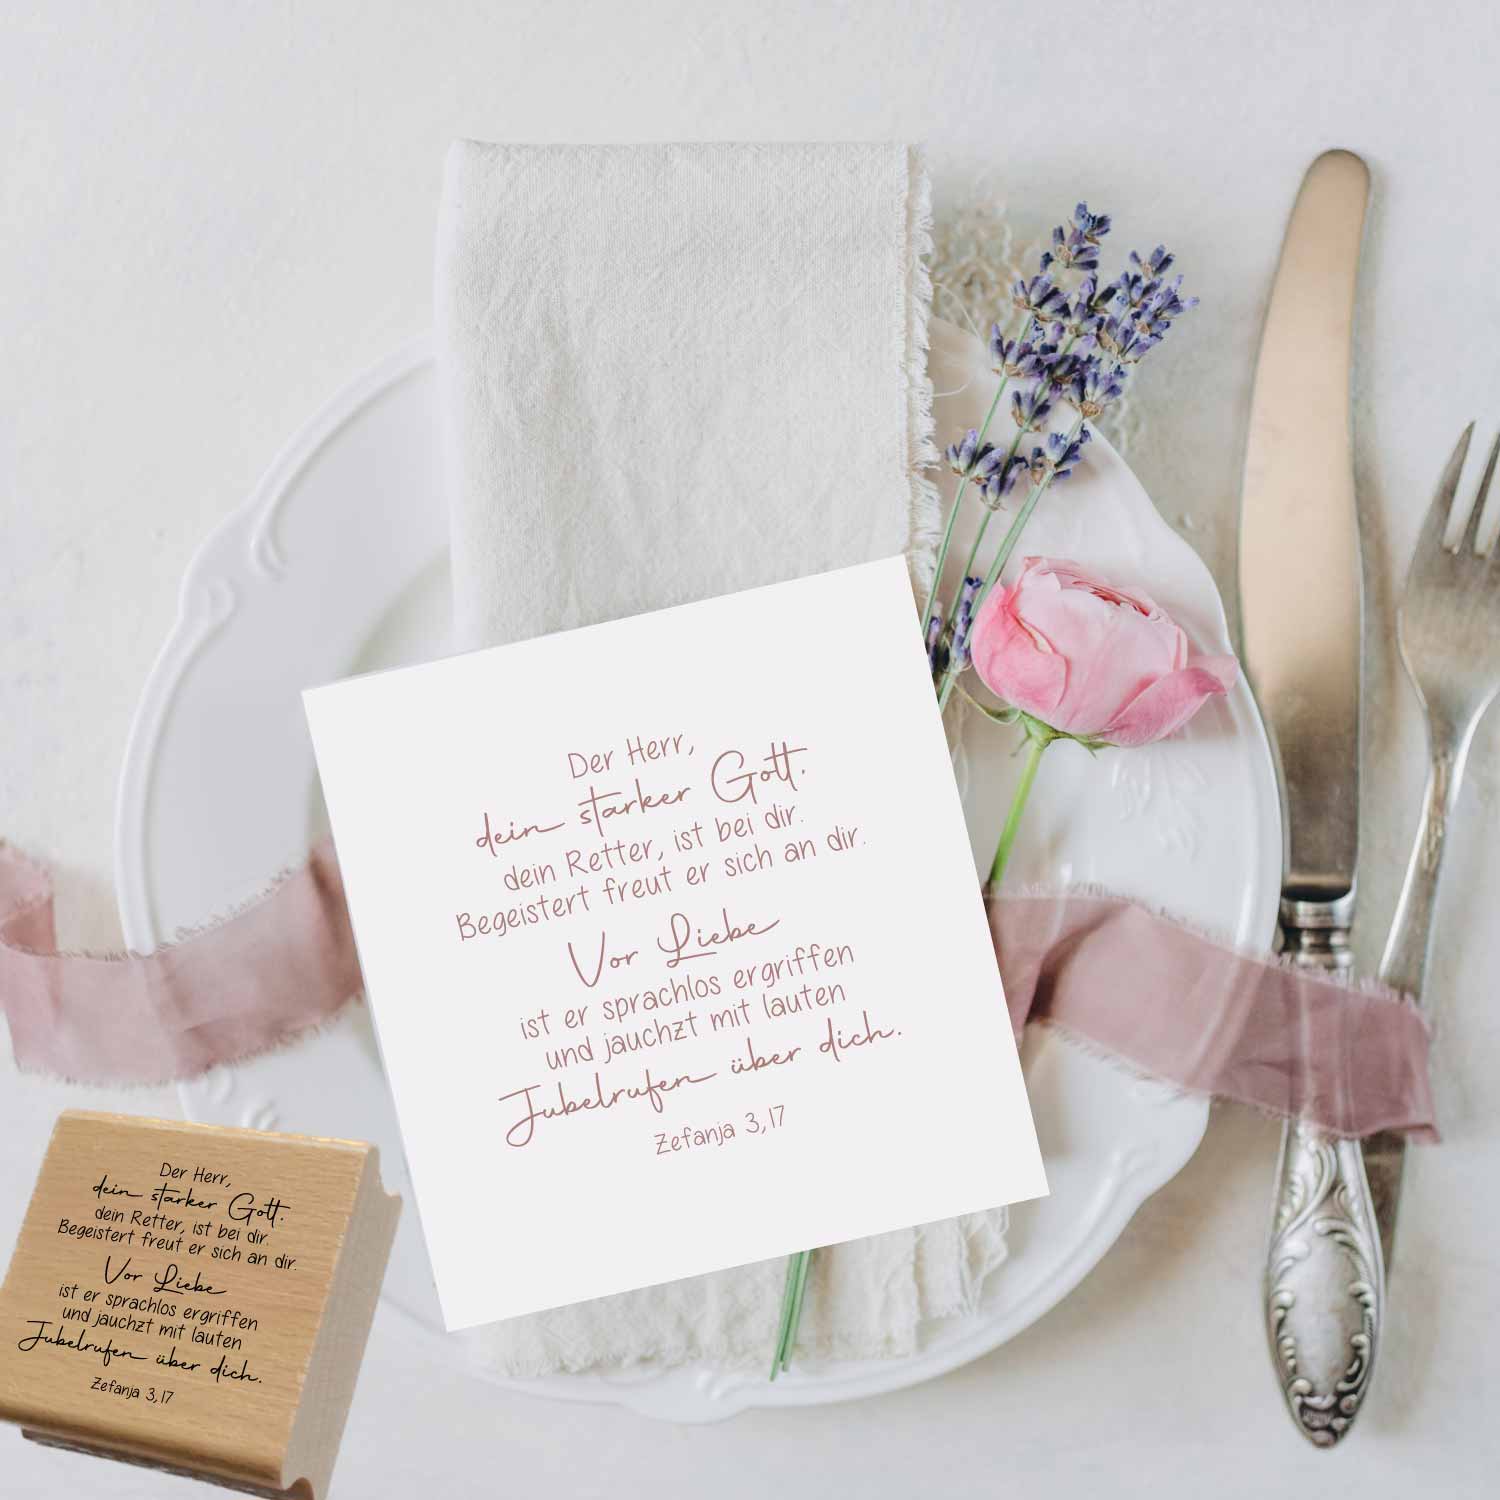 Der Herr,
dein starker Gott.
dein Retter, ist bei dir.
Begeistert freut er sich an dir.
Vor Liebe
ist er sprachlos ergriffen
und jauchzt mit lauten
Jubelrufen über dich.
Zefanja 3,17
Der Herr,
dein starker Gott.
dein Retter, ist bei dir.
Begeistert freut er sich an dir.
Vor Liebe
ist er sprachlos ergriffen
und jauchzt mit lauten
Jubelrufen über dich.
Zefanja 3,17